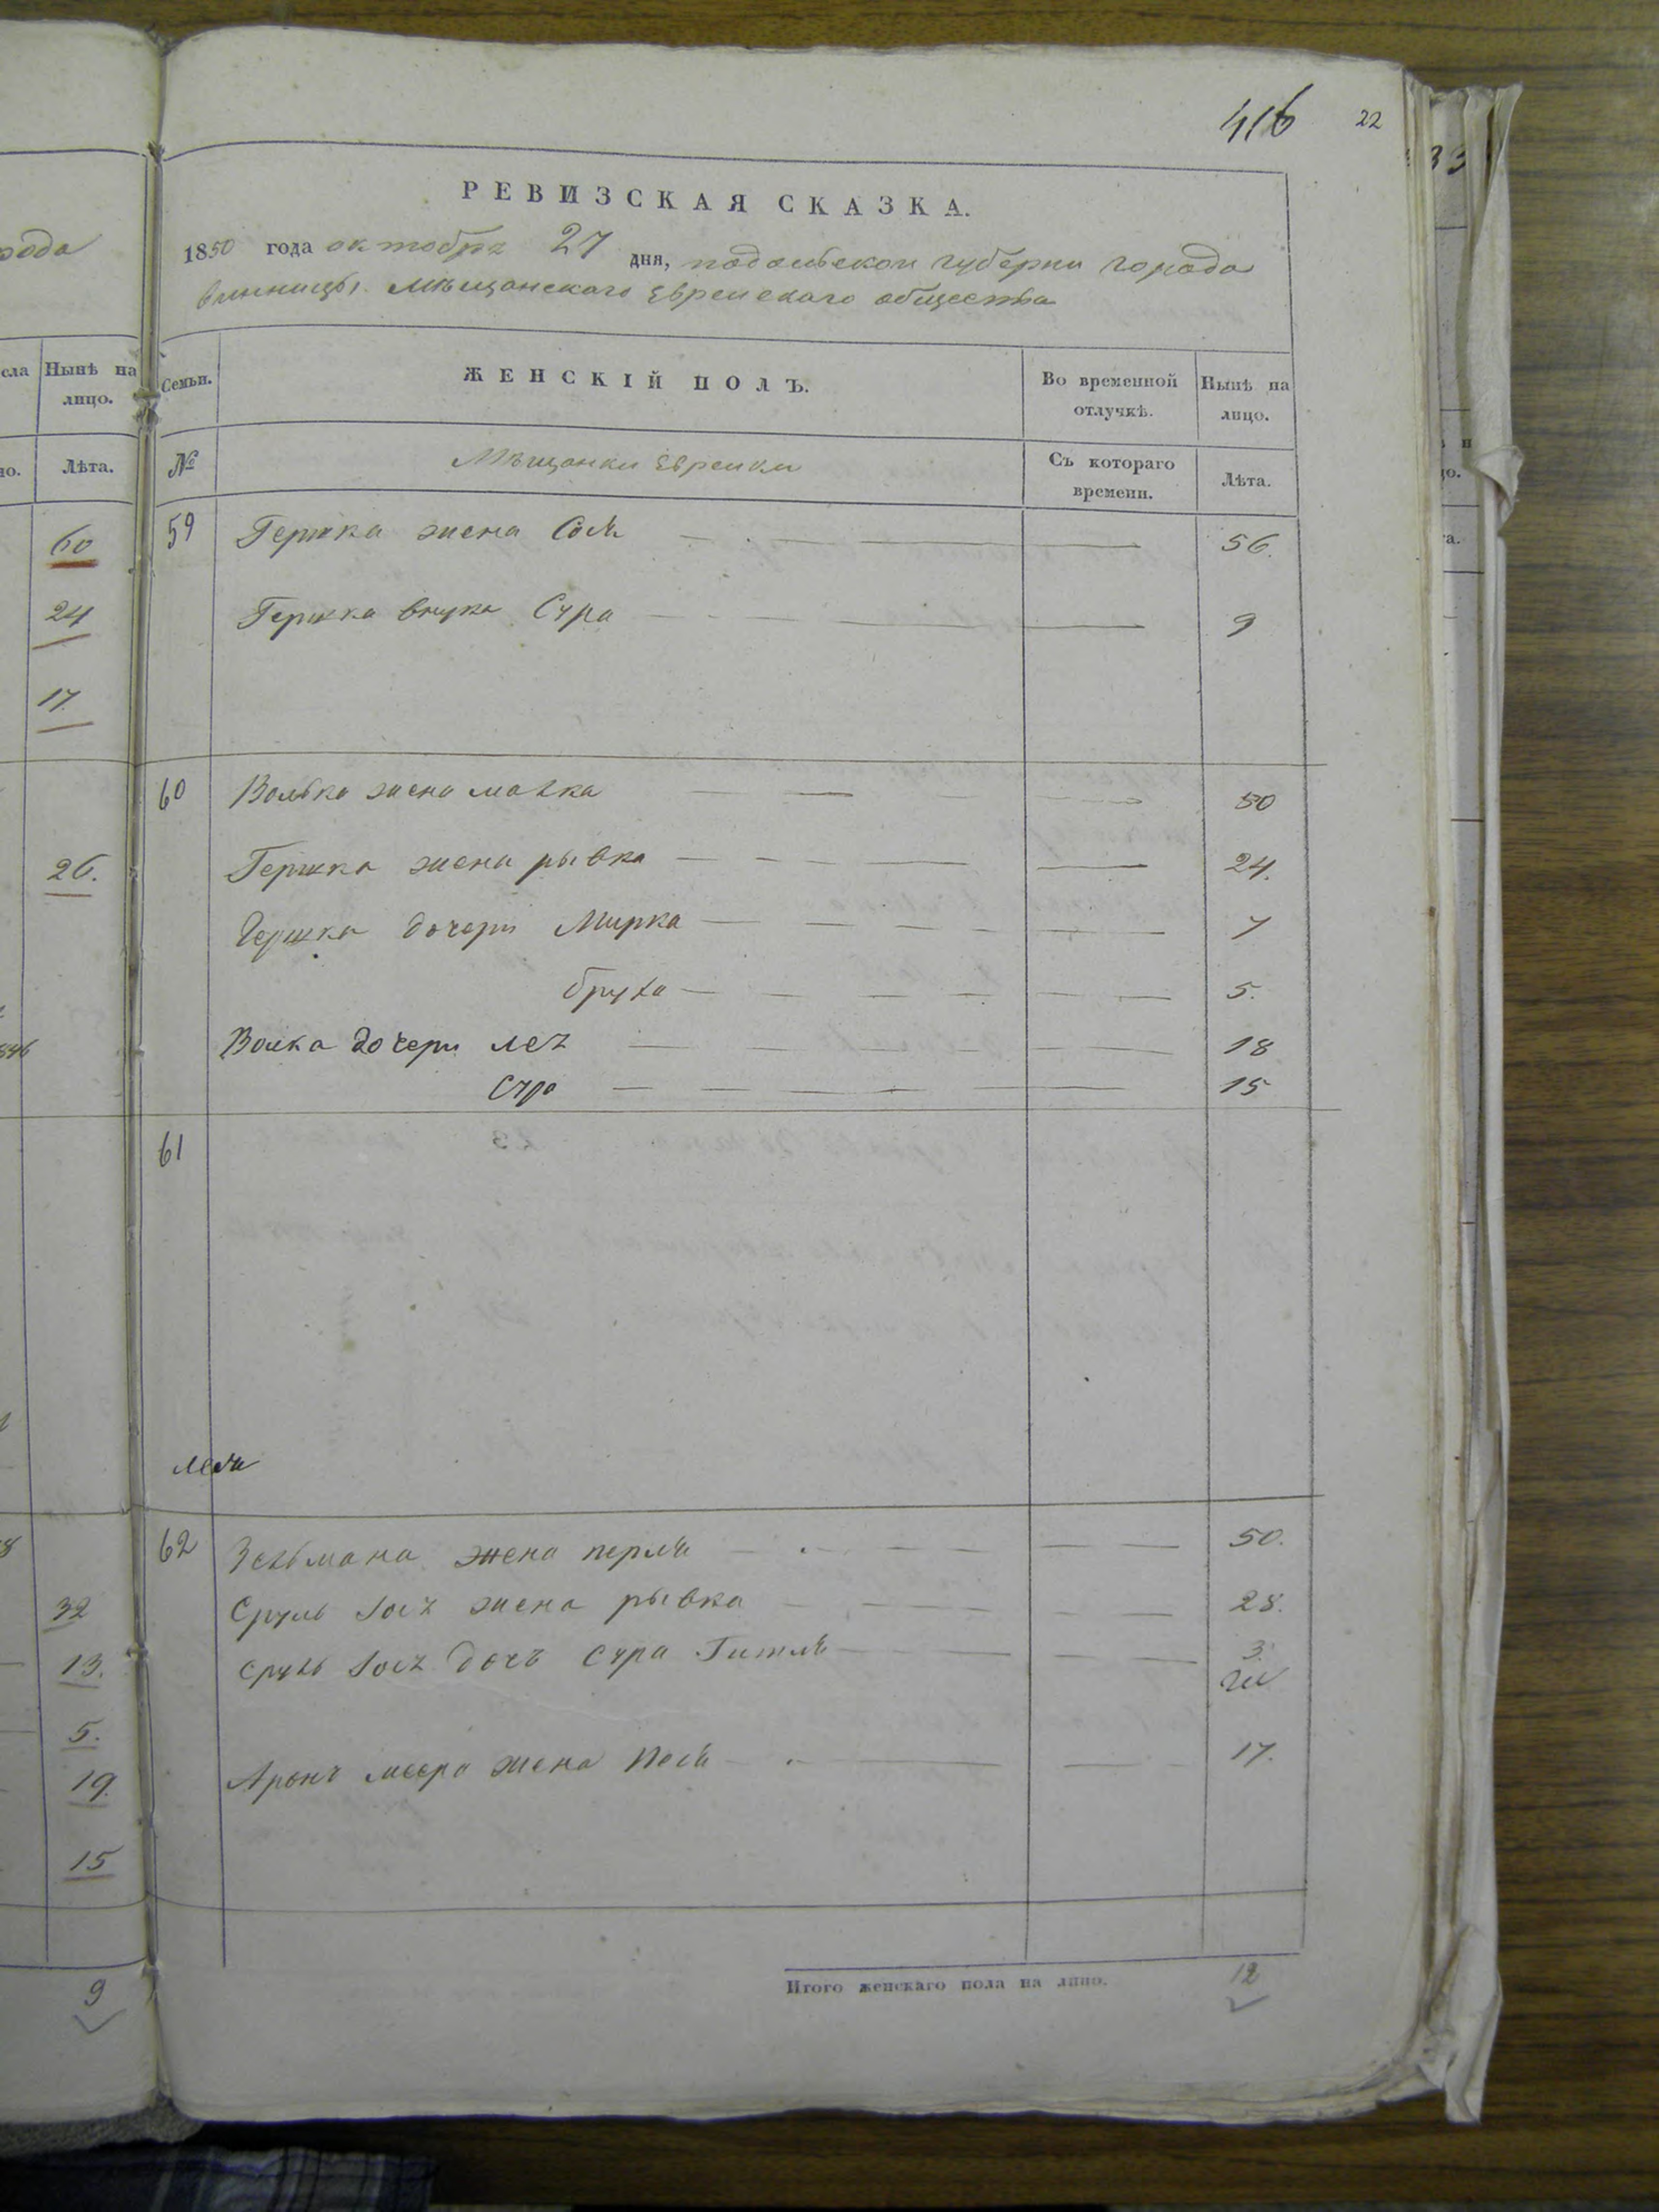 416 22
33
РЕВИЗСКАЯ СКАЗКА.
1850 года октобря 27 дня, подольскои губерни города
винницы мѣщанскаго Еврейскаго общества
рода
сла Нынѣ на лицо.
но. Лѣта.
60
24
17.
26.
846
8
32
13.
5.
19.
15
9
Семьи. ЖЕНСКІЙ ПОЛЪ. Во временной отлучкѣ. Нынѣ на лицо.
№ Мѣщанки Евреики Съ котораго времени. Лѣта.
59 Гершка жена 56.
Гершка внука Сура 9
60 Волька жена малка 50
Гершка жена рывка 24.
Гершка дочери Мирка 7
бруха 5.
Волка дочери лея 18
Сура 15
61
62 Зельмана жена перля 50.
Сруль жена рывка 28.
Сруль дочь сура Гитля 3.
Аронъ меера жена Песя 17.
Итого женскаго пола на лицо. 12